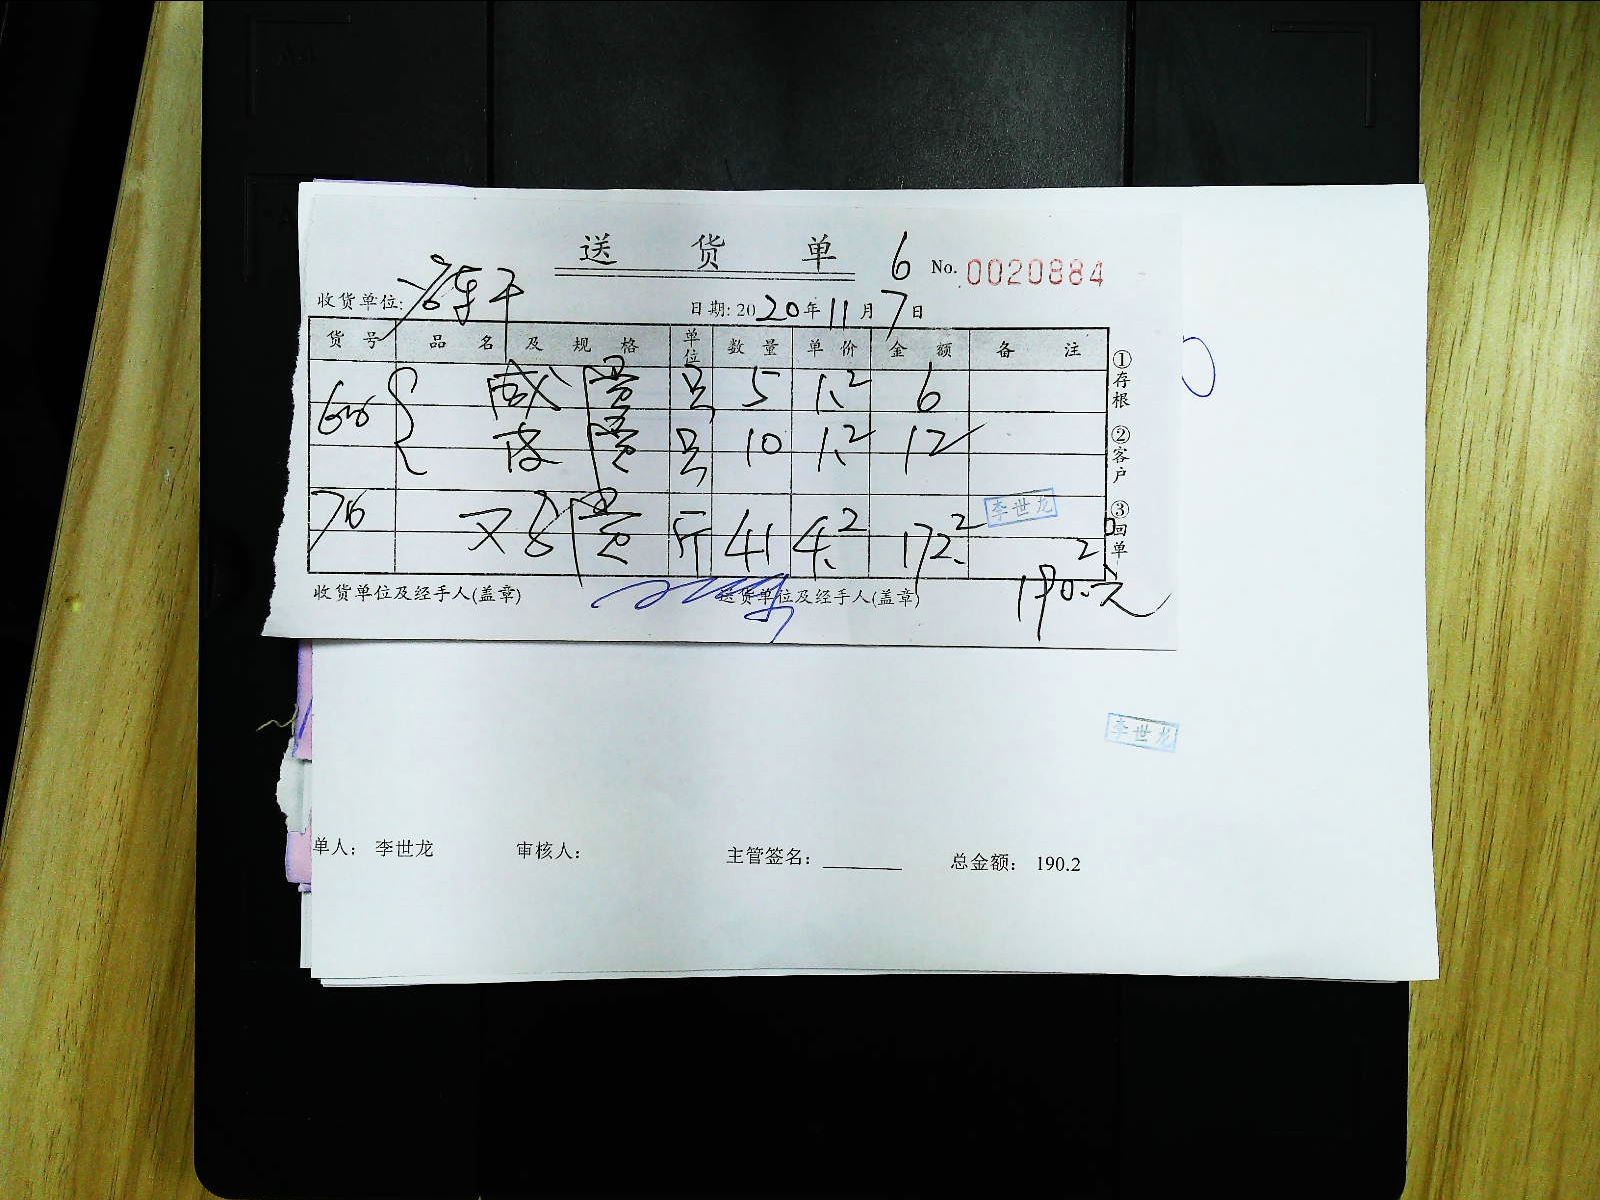 送货单 6 No. 0020884
收货单位: 日期: 2020年11月7日
货号 品名及规格 单位 数量 单价 金额 备注
咸蛋 只 5 1.2 6
皮蛋 只 10 1.2 12
76 蛋 斤 41 4.2 172.2
李世龙
190.2元
①存根 ②客户 ③回单
收货单位及经手人(盖章) 送货单位及经手人(盖章)
李世龙
单人： 李世龙 审核人： 主管签名： 总金额： 190.2